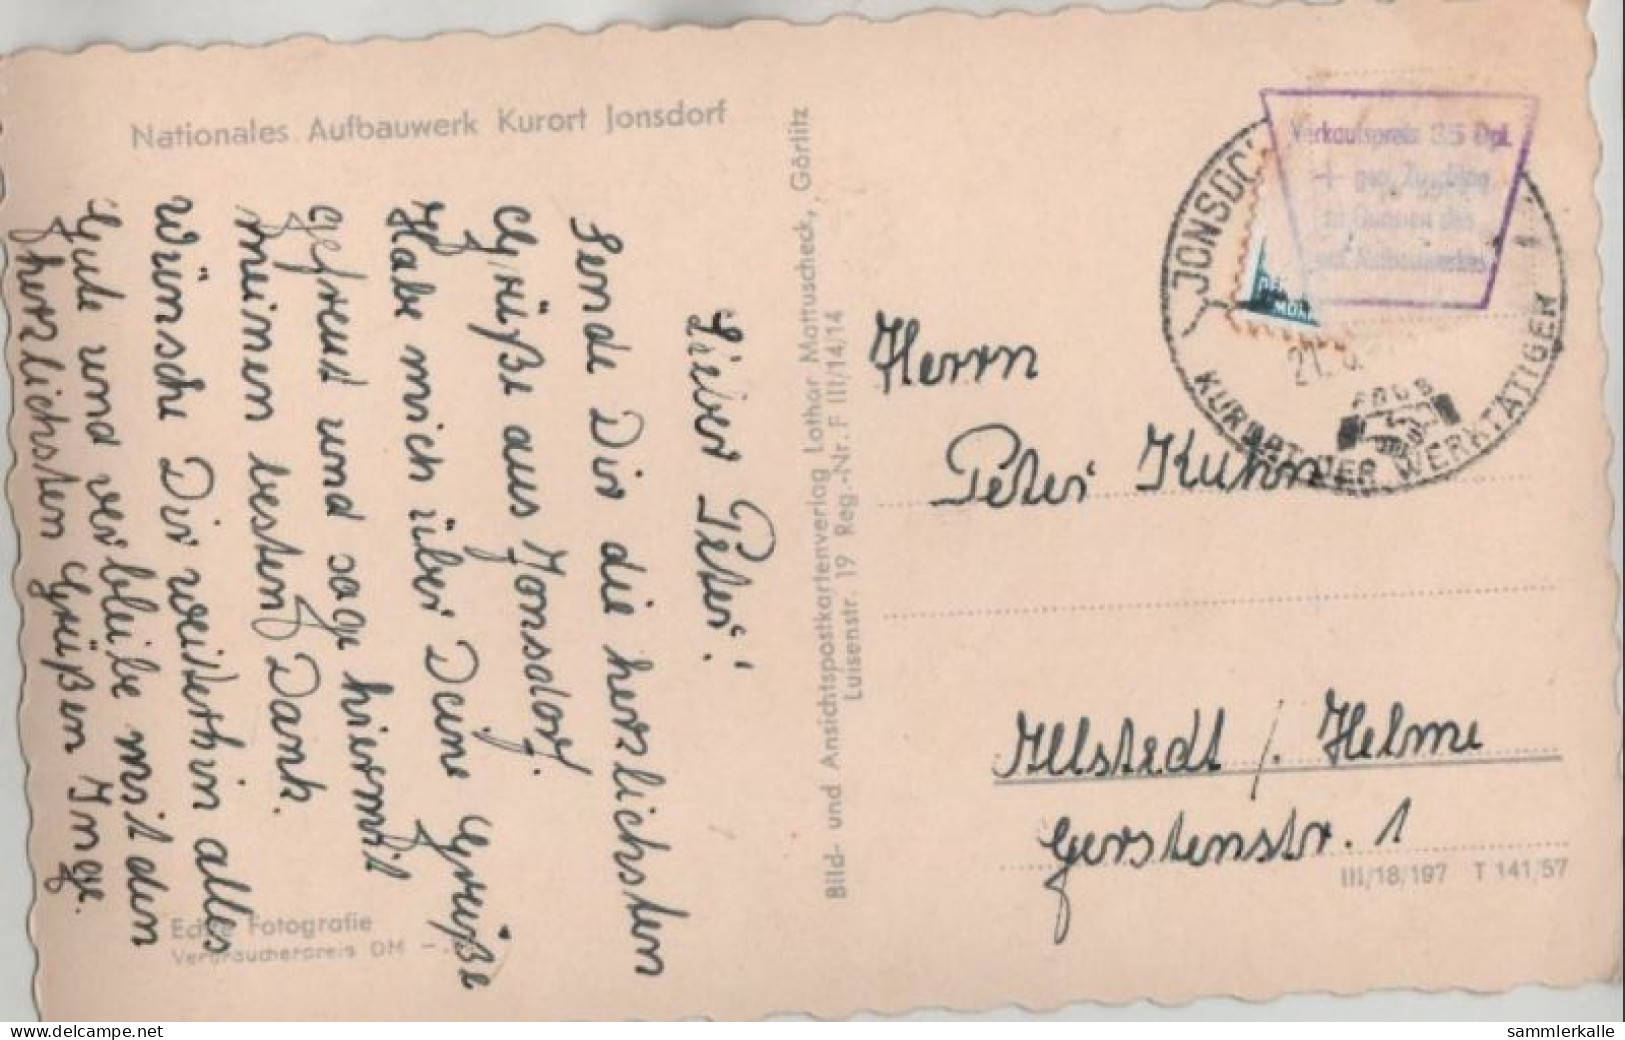 Nationales Aufbauwerk Kurort Jonsdorf
Lieber Peter!
Sende Dir die herzlichsten
Grüße aus Jonsdorf.
Habe mich über Deine Grüße
gefreut und sage hiermit
meinen besten Dank.
Wünsche Dir weiterhin alles
Gute und verbleibe mit den
herzlichsten Grüßen Inge.
Echte Fotografie
Verbraucherpreis DM
Bild- und Ansichtspostkartenverlag Lothar Mattuscheck, Görlitz
Luisenstr. 19 Reg.-Nr. F III/14/14
Verkaufspreis Dpf.
+
zu Gunsten des
JONSDO
KURORT DER WERKTÄTIGEN
FDGB
21.
Herrn
Peter Kuhn
Allstedt / Helme
Gerstenstr. 1
III/18/197 T 141/57
www.delcampe.net
sammlerkalle